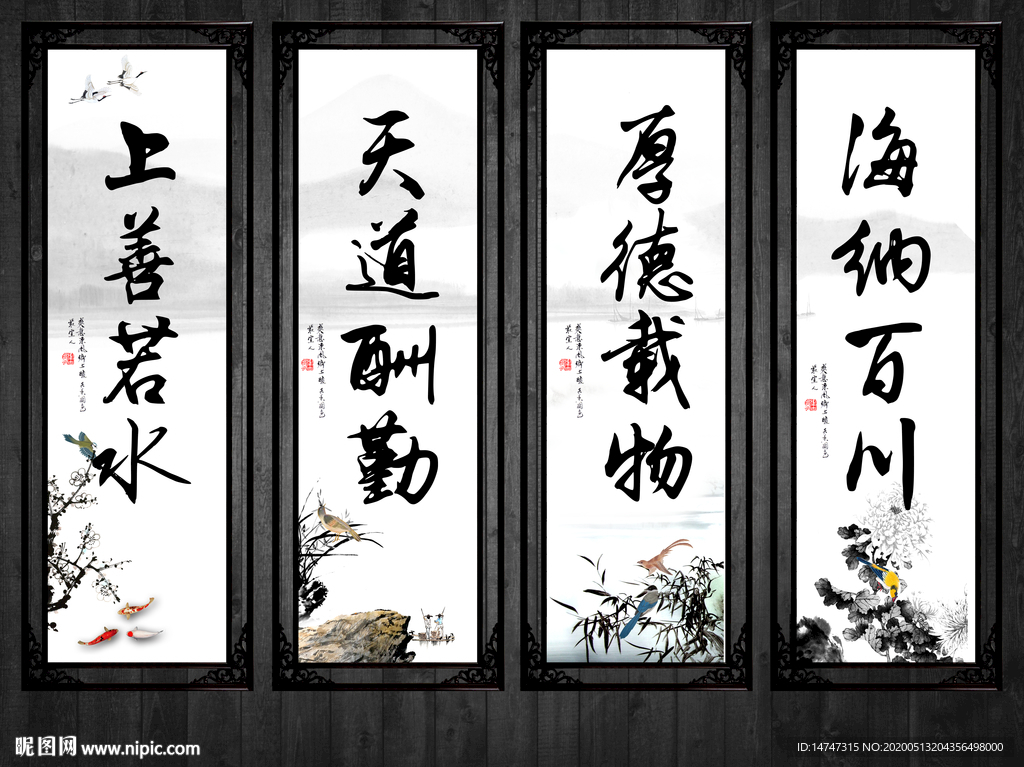 上善若水
天道酬勤
厚德载物
海纳百川
昵图网 www.nipic.com
ID:14747315 NO:20200513204356498000